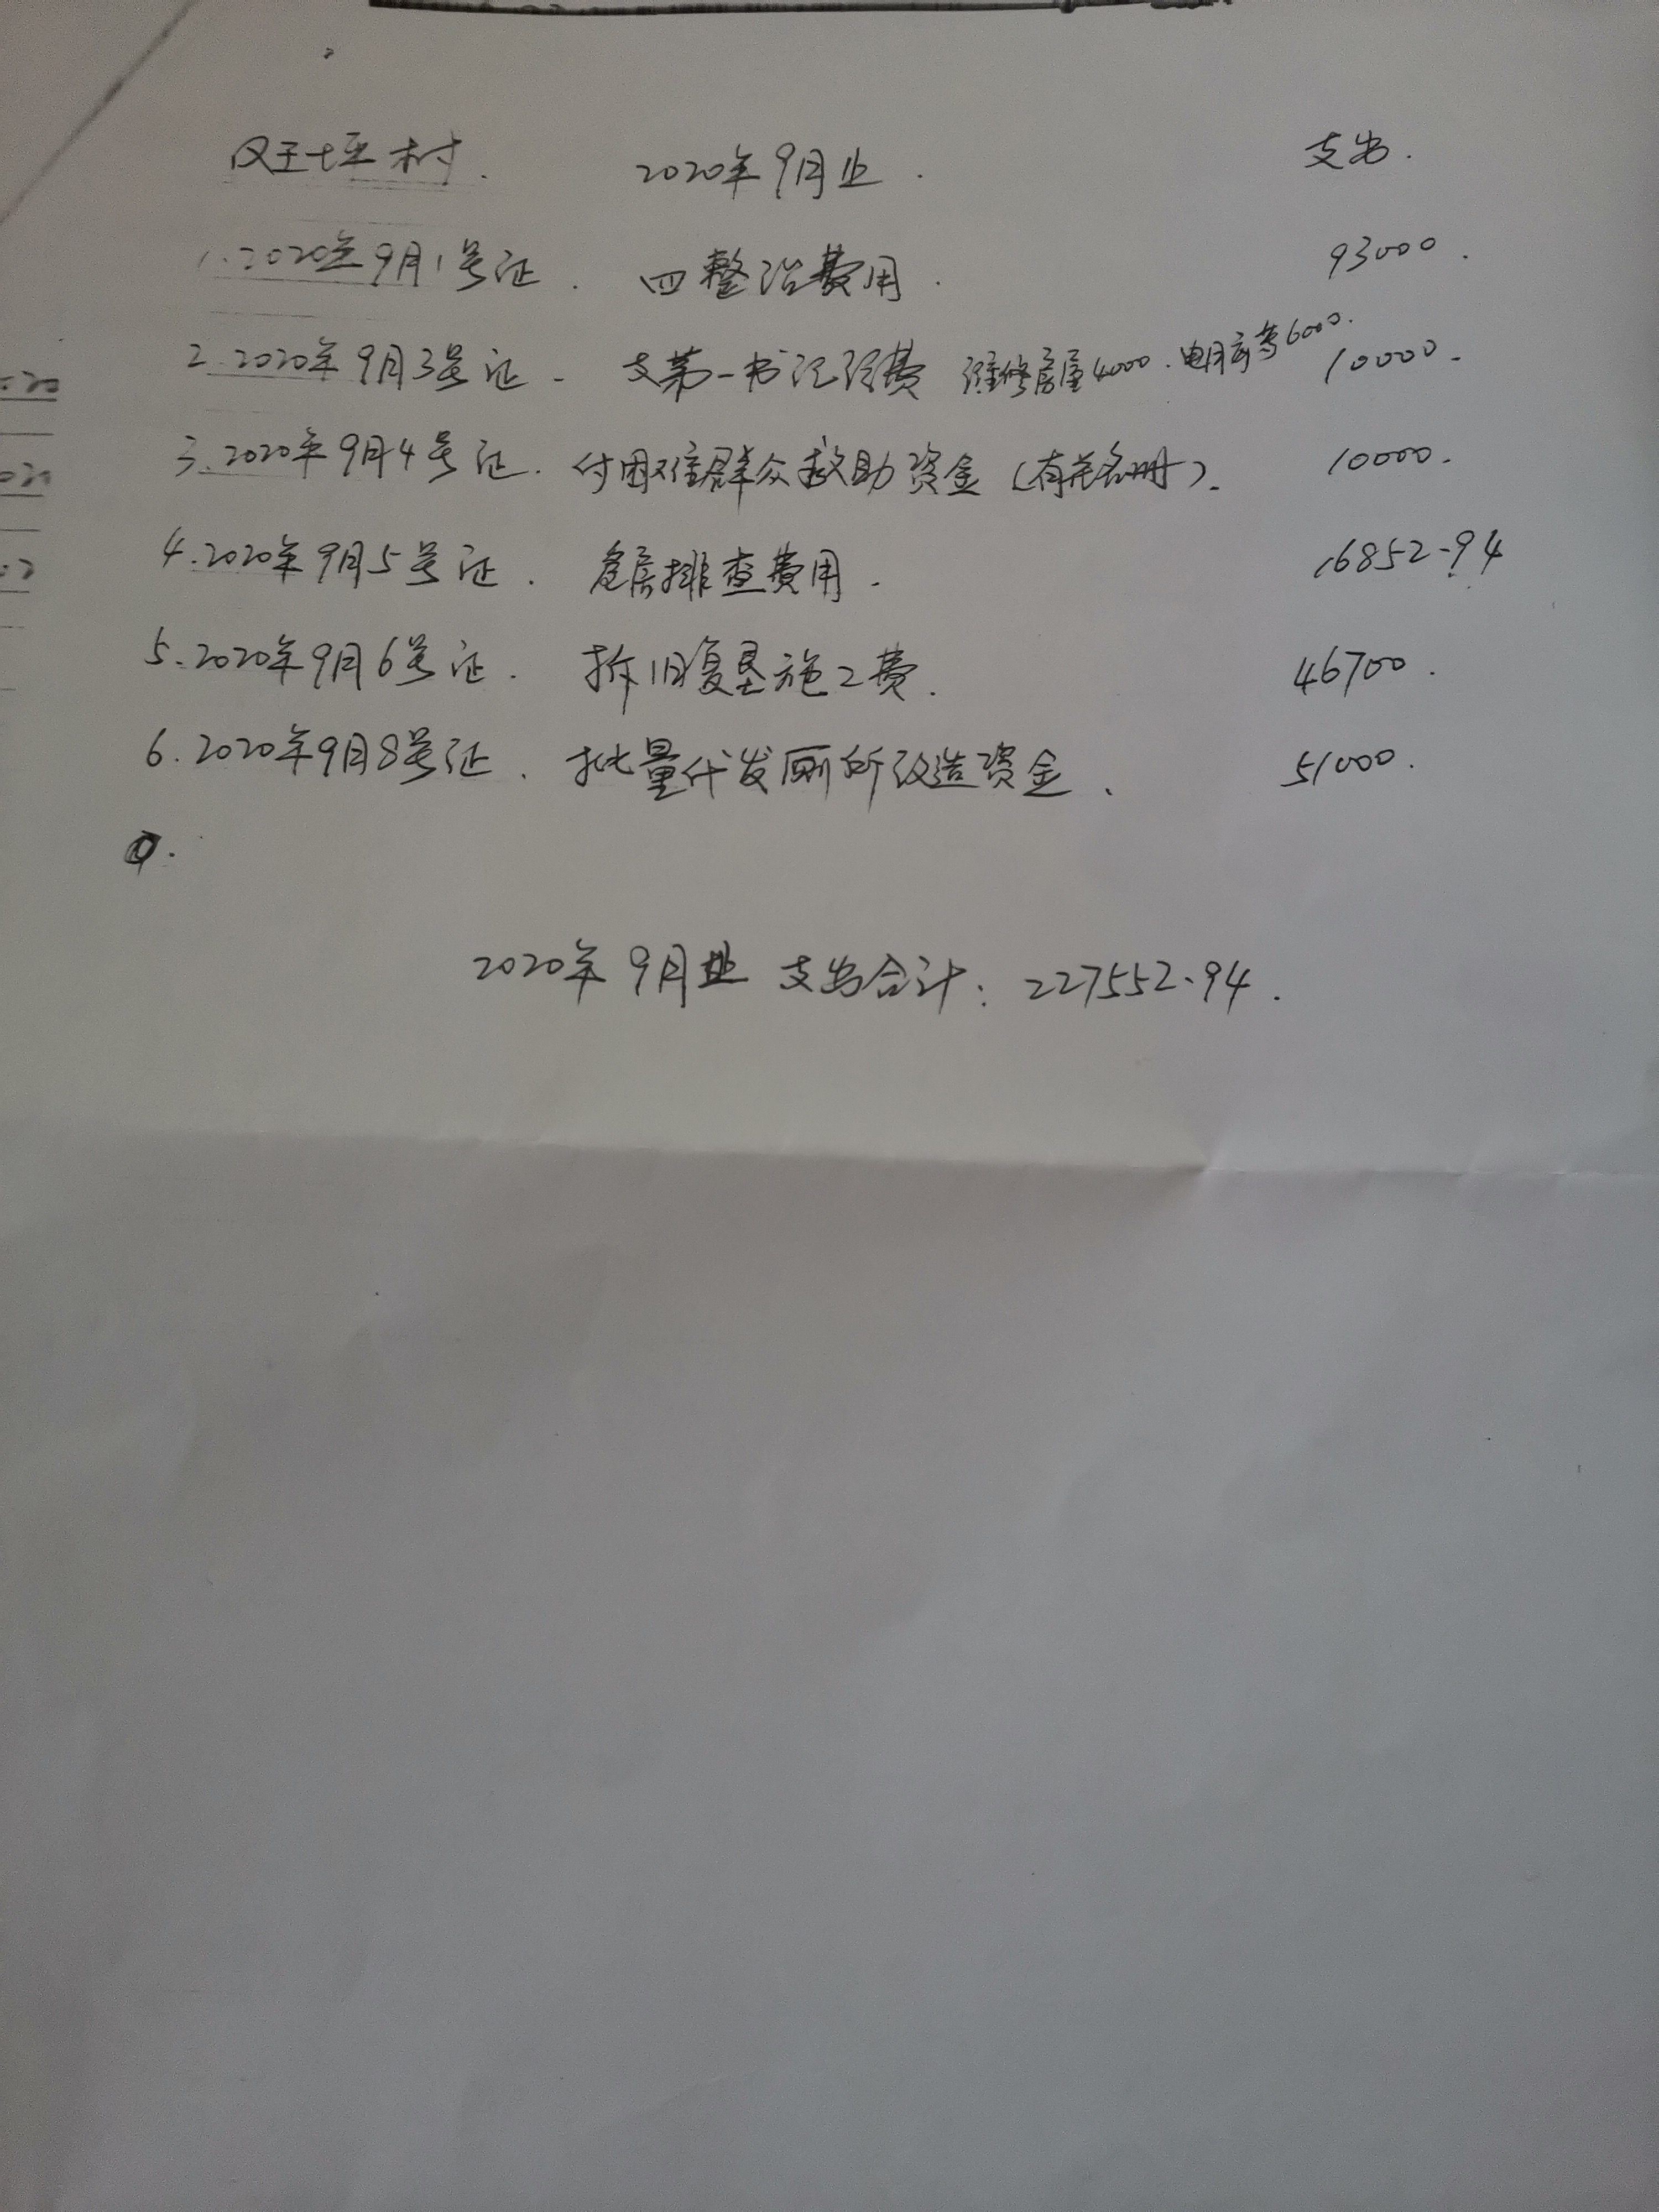 坪村. 2020年9月止. 支出.
1.2020年9月1号证. 四整治费用. 93000.
2.2020年9月3号证. 支第一书记经费 维修房屋4000. 6000. 10000.
3.2020年9月4号证. 付困难群众救助资金(有花名册). 10000.
4.2020年9月5号证. 危房排查费用. 16852.94
5.2020年9月6号证. 拆旧复垦施工费. 46700.
6.2020年9月8号证. 批量代发厕所改造资金. 51000.
2020年9月止 支出合计: 227552.94.